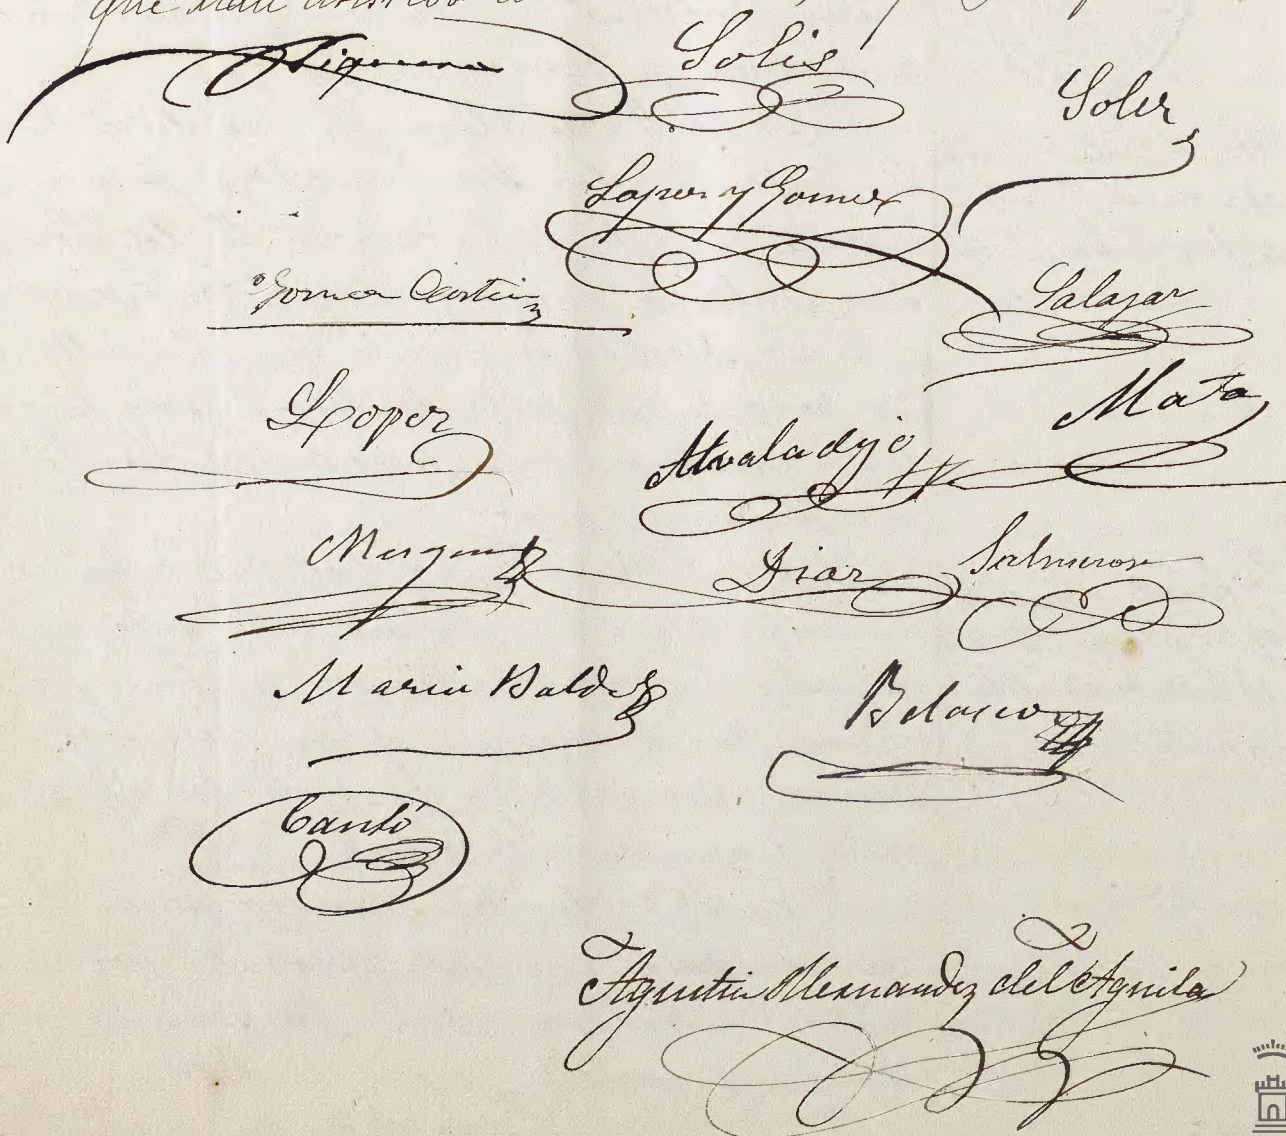 que
Figueroa Solis
Soler
Lopez y Gomez
Gomez Cortina
Salazar
Lopez
Mata
Alvaladejo
Diaz Salmeron
Maria Baldo
Belasco
Cantó
Agustin Hernandez del Aguila